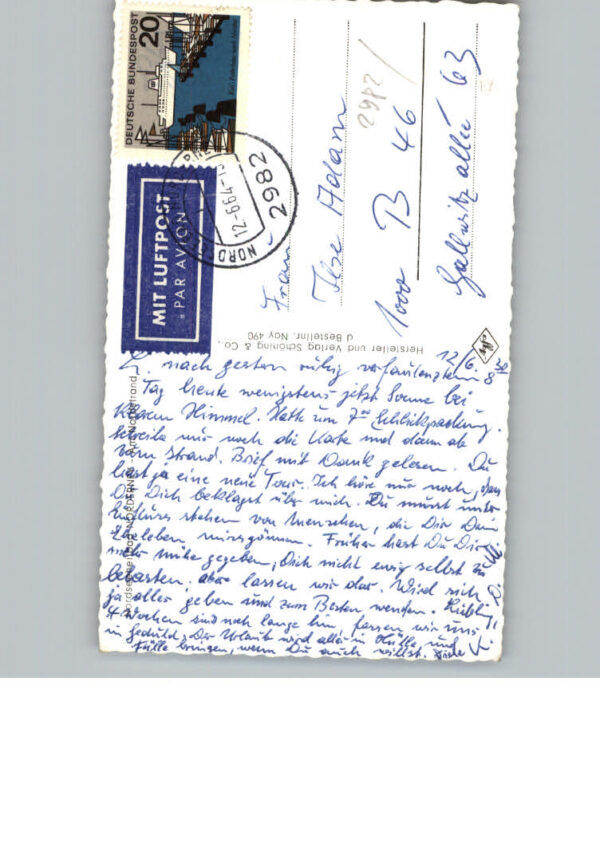 DEUTSCHE BUNDESPOST
20
NORD
12.-6.64-
2982
MIT LUFTPOST
PAR AVION
Frau
Ilse Adam
2982
1000 B 46
Gallwitzallee 63
Hersteller und Verlag Schöning & Co.,
Bestellnr. Noy 490
Nordseeheilbad NORDERNEY - Am Nordstrand
12/6. 8
L. nach gestern ruhig verfaulenztem
Tag heute wenigstens jetzt Sonne bei
klarem Himmel. Hatte um 7 Schlickpackung.
Schreibe nur noch die Karte und dann ab
zum Strand. Brief mit Dank gelesen. Du
hast ja eine neue Tour. Ich höre nur noch, dass
Du Dich beklagst über mich. Du musst unter
Einfluss stehen von Menschen, die Dir Dein
Eheleben missgönnen. Früher hast Du Dir
mehr Mühe gegeben, Dich nicht ewig selbst zu
belasten. aber lassen wir das. Wird sich
ja alles geben und zum Besten wenden. Liebling,
4 Wochen sind noch lange hin, fassen wir uns
in Geduld. Der Urlaub wird alles in Hülle und
Fülle bringen, wenn Du auch willst.